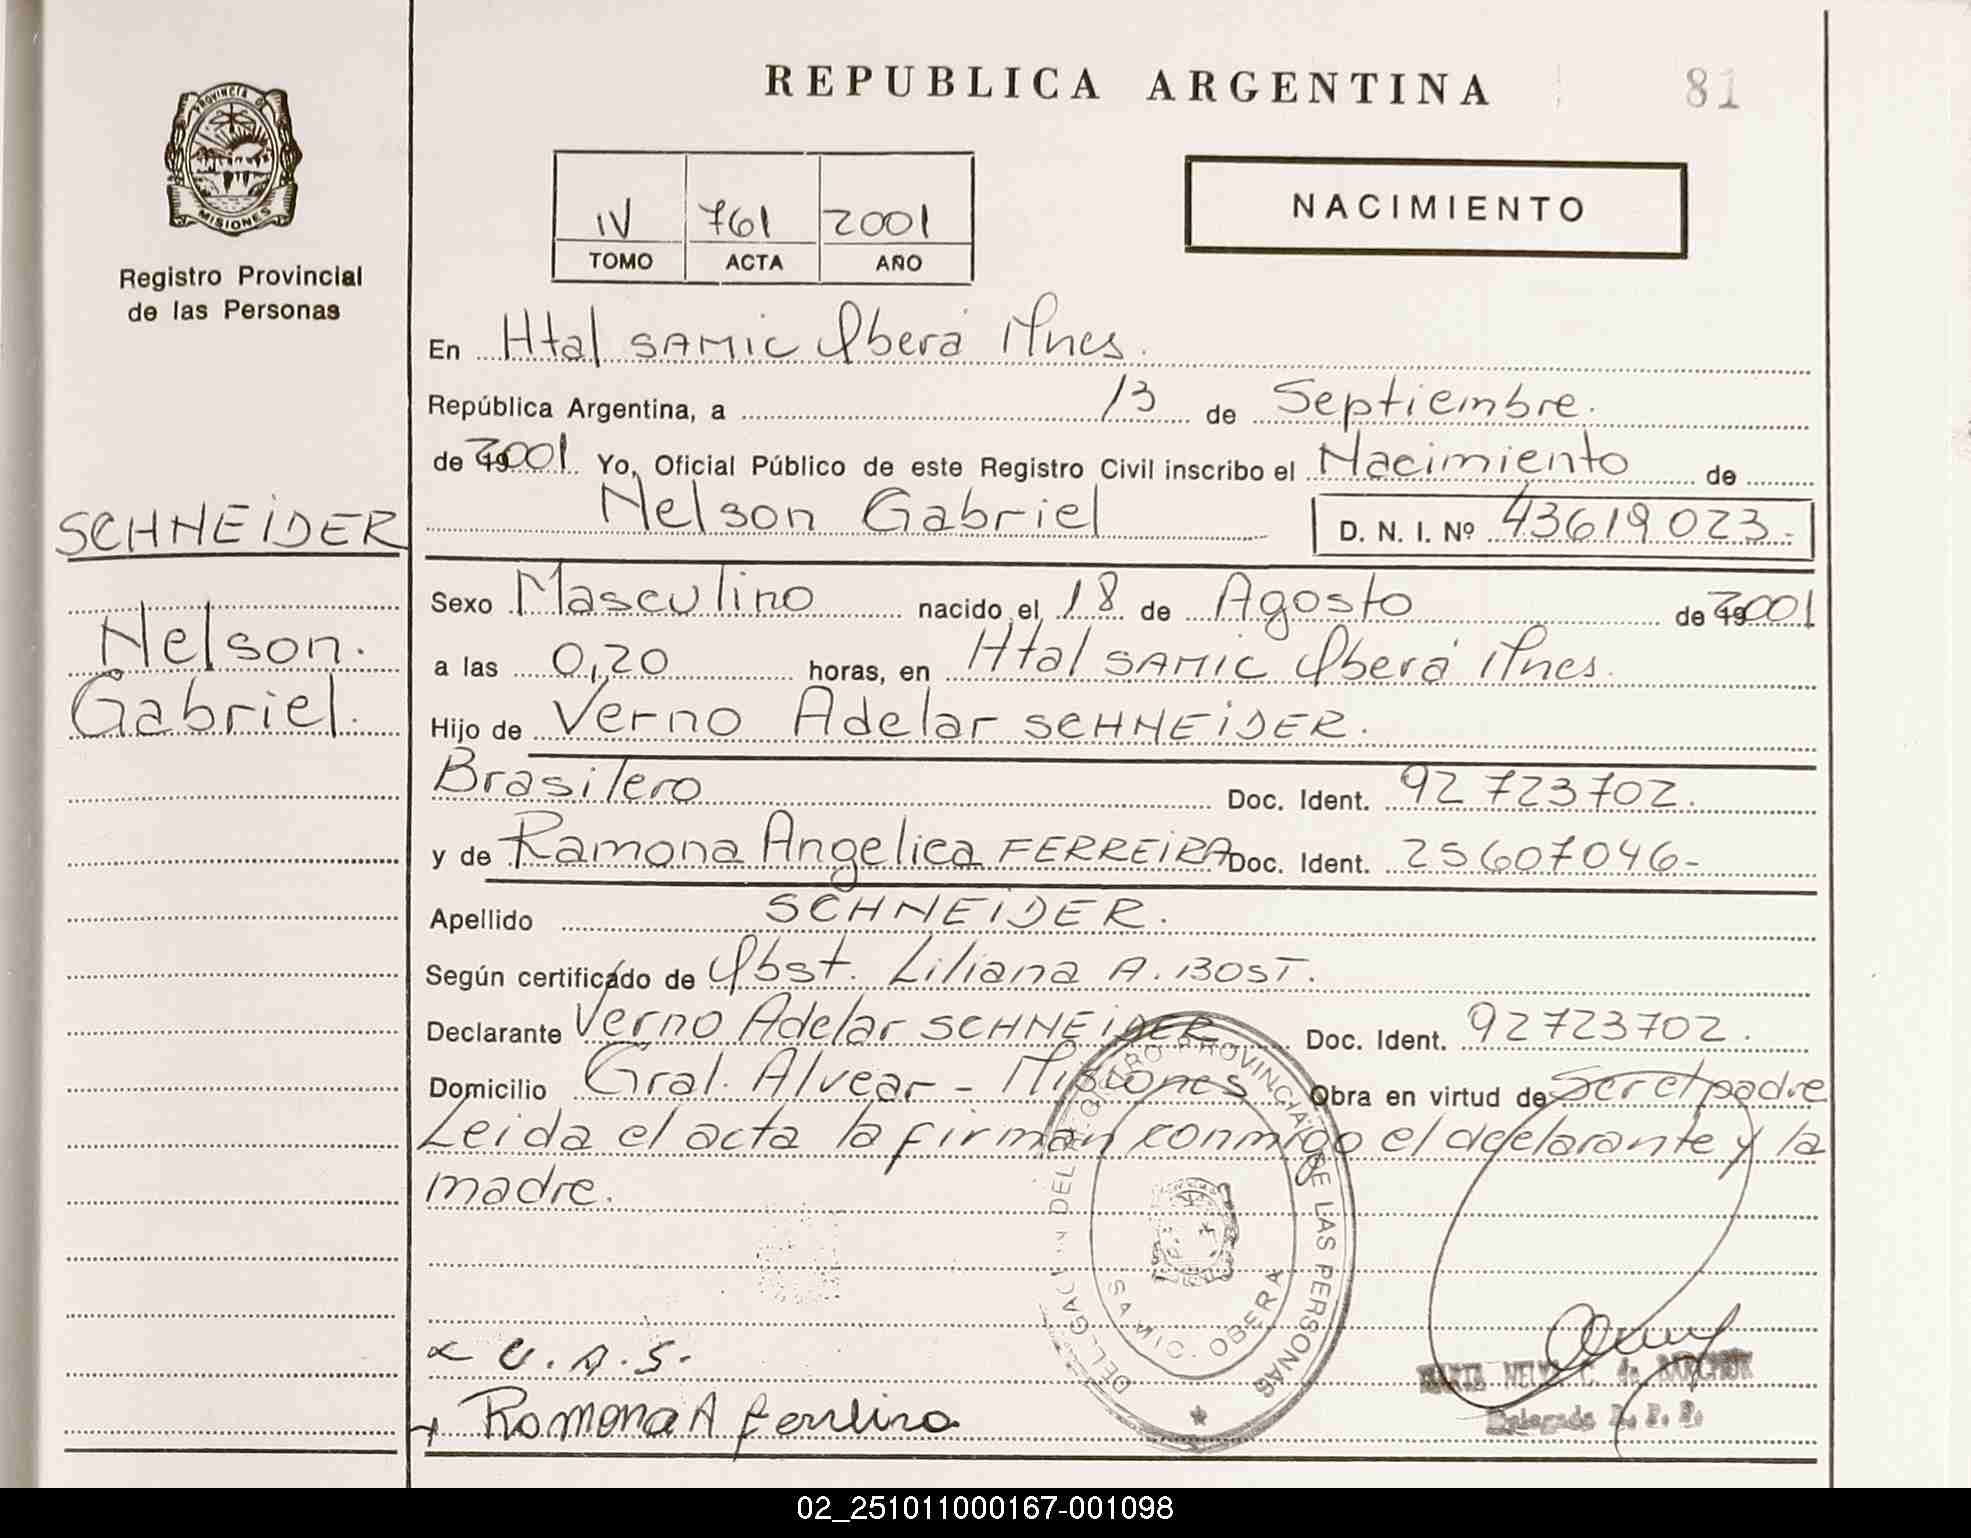 REPUBLICA ARGENTINA
81
PROVINCIA D
MISIONES
Registro Provincial
de las Personas
IV 761 2001
TOMO ACTA AÑO
NACIMIENTO
En Htal SAMIC Oberá Mnes.
República Argentina, a 13 de Septiembre.
de 2001 Yo, Oficial Público de este Registro Civil inscribo el Nacimiento de
Nelson Gabriel D. N. I. Nº 43619023.-
SCHNEIDER
Nelson.
Gabriel.
Sexo Masculino nacido el 18 de Agosto de 2001
a las 0,20 horas, en Htal SAMIC Oberá Mnes.
Hijo de Verno Adelar SCHNEIDER.
Brasilero Doc. Ident. 92723702.
y de Ramona Angelica FERREIRA Doc. Ident. 25607046-
Apellido SCHNEIDER.
Según certificado de Obst. Liliana A. BOST.
Declarante Verno Adelar SCHNEIDER Doc. Ident. 92723702.
Domicilio Gral. Alvear - Misiones Obra en virtud de Ser el padre
Leida el acta la firman conmigo el declarante y la
madre.
REGISTRO PROVINCIAL DE LAS PERSONAS
SAMIC. OBERA
V.A.S.
Ramona A ferreira
Delegada R. P. P.
02_251011000167-001098